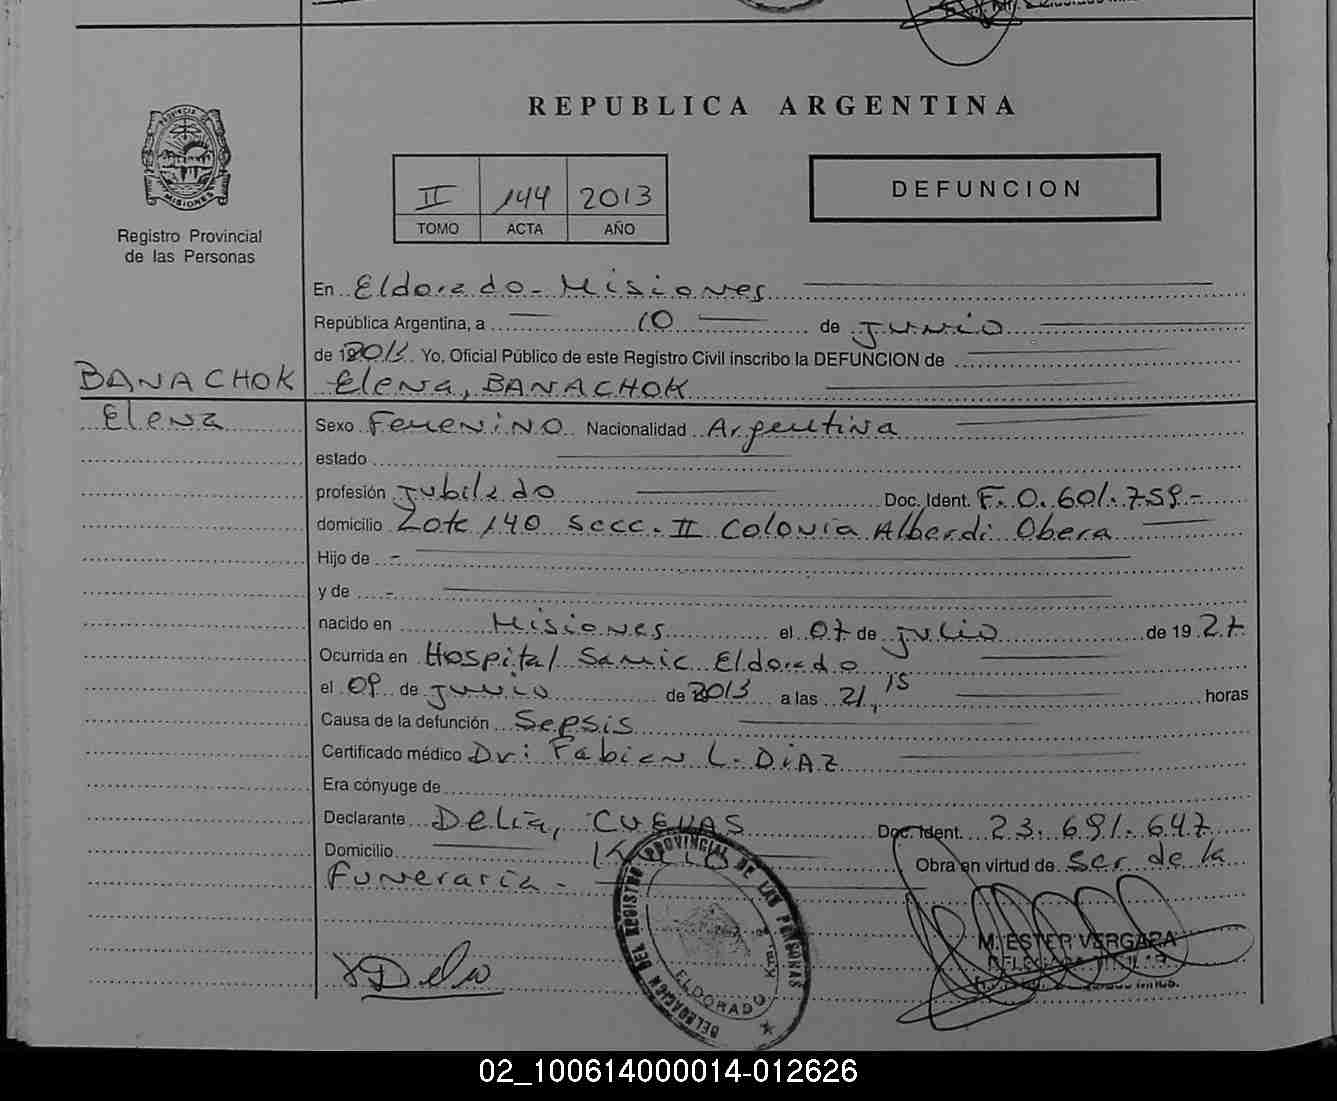 REPUBLICA ARGENTINA
PROVINCIA DE
MISIONES
Registro Provincial
de las Personas
II 144 2013
TOMO ACTA AÑO
DEFUNCION
En Eldorado - Misiones
República Argentina, a 10 de junio
de 2013 Yo, Oficial Público de este Registro Civil inscribo la DEFUNCION de
BANACHOK
Elena
Elena, BANACHOK
Sexo Femenino Nacionalidad Argentina
estado
profesión jubilado Doc. Ident. F. 0.601.759.-
domicilio Lote 140 Secc. II Colonia Alberdi Obera
Hijo de -
y de -
nacido en Misiones el 07 de julio de 1927
Ocurrida en Hospital Samic Eldorado
el 09 de junio de 2013 a las 21,15 horas
Causa de la defunción Sepsis
Certificado médico Dr: Fabian L. DIAZ
Era cónyuge de
Declarante Delia, CUEVAS Doc. Ident. 23.691.647
Domicilio Obra en virtud de Ser de la
Funeraria -
DELEGACION DEL REGISTRO PROVINCIAL DE LAS PERSONAS
ELDORADO
M. ESTER VERGARA
02_100614000014-012626